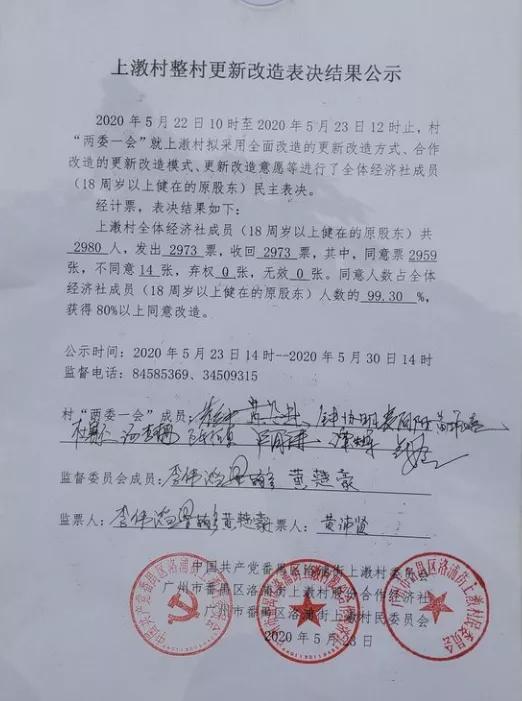 上漖村整村更新改造表决结果公示
2020年5月22日10时至2020年5月23日12时止，村
“两委一会”就上漖村拟采用全面改造的更新改造方式、合作
改造的更新改造模式、更新改造意愿等进行了全体经济社成员
（18周岁以上健在的原股东）民主表决。
经计票，表决结果如下：
上漖村全体经济社成员（18周岁以上健在的原股东）共
2980人，发出2973票，收回2973票，其中，同意票2959
张，不同意14张，弃权0张，无效0张。同意人数占全体
经济社成员（18周岁以上健在的原股东）人数的99.30%，
获得80%以上同意改造。
公示时间：2020年5月23日14时--2020年5月30日14时
监督电话：84585369、34509315
村“两委一会”成员：
监督委员会成员：李伟 黄楚豪
监票人：李伟 黄楚豪 票人：黄沛贤
中国共产党番禺区洛浦街上漖村委员会
广州市番禺区洛浦街上漖村股份合作经济社
广州市番禺区洛浦街上漖村民委员会
2020年5月23日